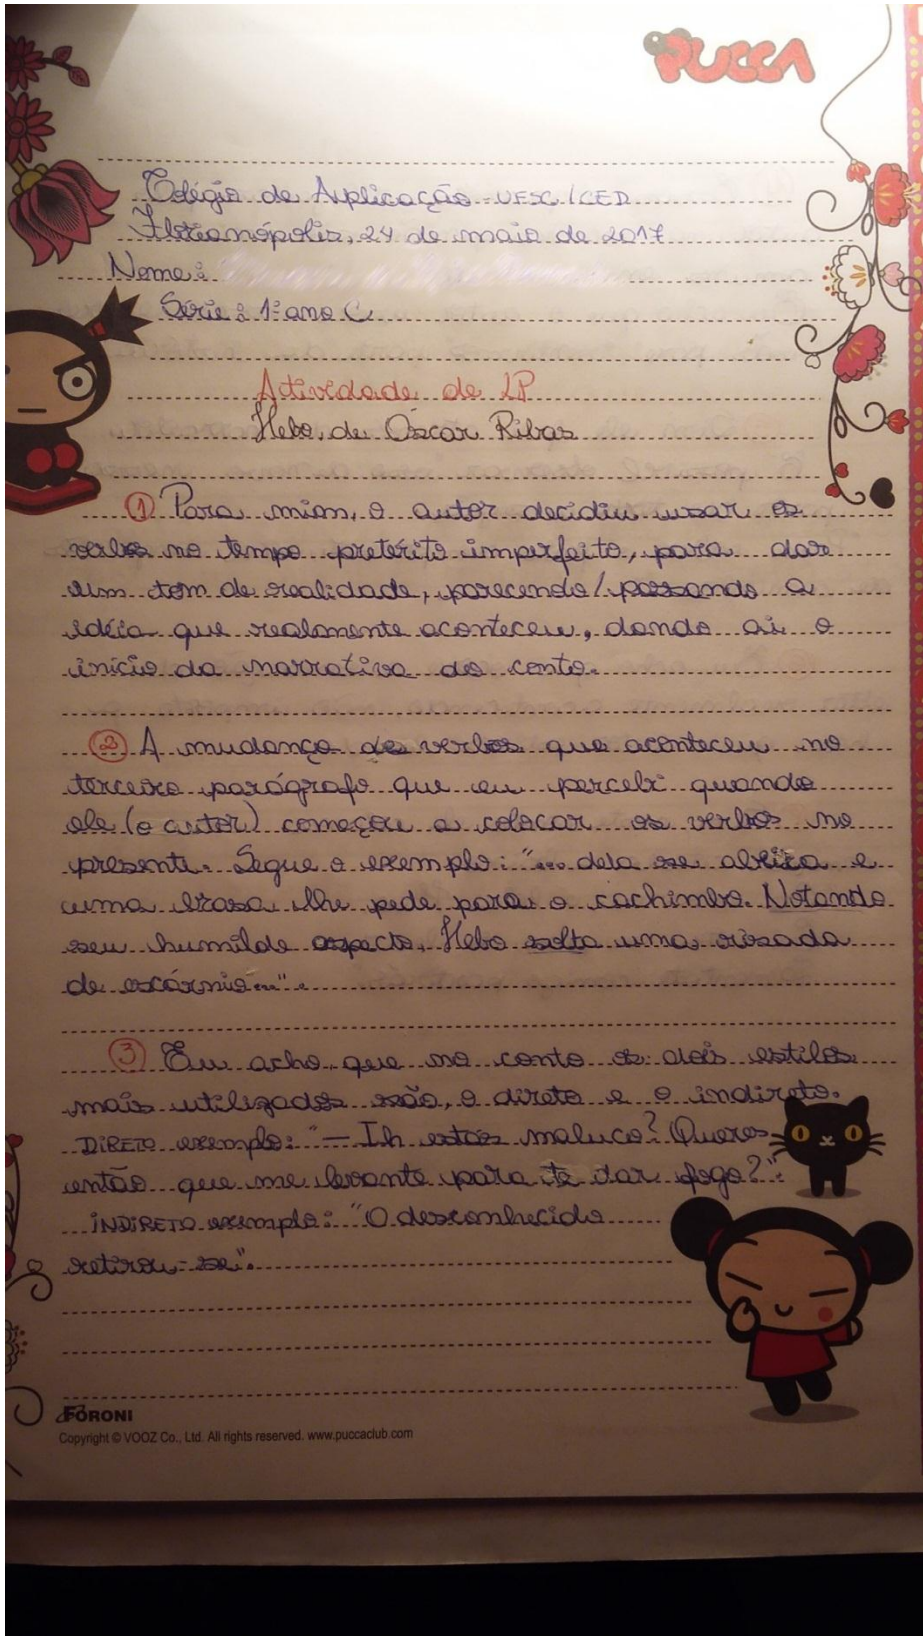 PUCCA
Colégio de Aplicação - UFSC/CED
Florianópolis, 24 de maio de 2017
Nome:
Série: 1º ano C
Actividade de LP
Hebo, de Óscar Ribas
① Para mim, o autor decidiu usar os
verbos no tempo pretérito imperfeito, para dar
um tom de realidade, parecendo/passando a
idéia que realmente aconteceu, dando ai o
início da narrativa do conto.
② A mudança de verbos que aconteceu no
terceiro parágrafo que eu percebi quando
ele (o autor) começou a colocar os verbos no
presente. Segue o exemplo: "... dela se abeira e
uma brasa lhe pede para o cachimbo. Notando
seu humilde aspecto, Hebo solta uma risada
de escárnio..."
③ Eu acho que no conto os dois estilos
mais utilizados são, o direto e o indireto.
DIRETO exemplo: "— Ih estás maluco? Queres
então que me levante para te dar fogo?".
INDIRETO exemplo: "O desconhecido
retirou-se".
FORONI
Copyright © VOOZ Co., Ltd. All rights reserved. www.puccaclub.com